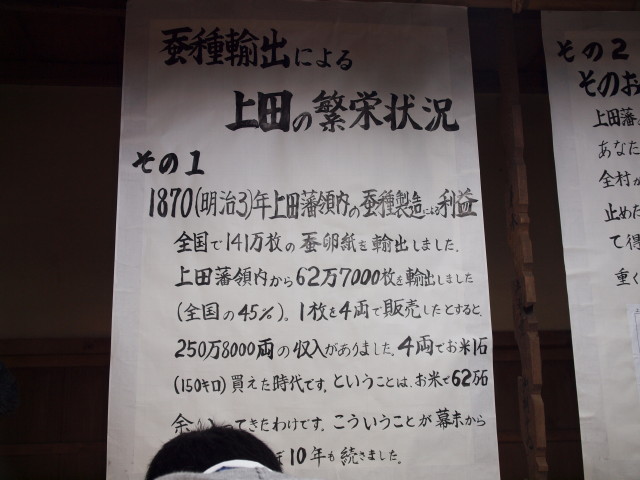 蚕種輸出による
上田の繁栄状況
その1
1870(明治3)年上田藩領内の蚕種製造による利益
全国で141万枚の蚕卵紙を輸出しました.
上田藩領内から62万7000枚を輸出しました
(全国の45%)。1枚を4両で販売したとすると、
250万8000両の収入がありました。4両でお米1石
(150キロ)買えた時代です。ということは、お米で62万石
余 ってきたわけです。こういうことが幕末から
10年も続きました.
その2
そのお
上田藩
あなた
全村が
止めた
て得
重く